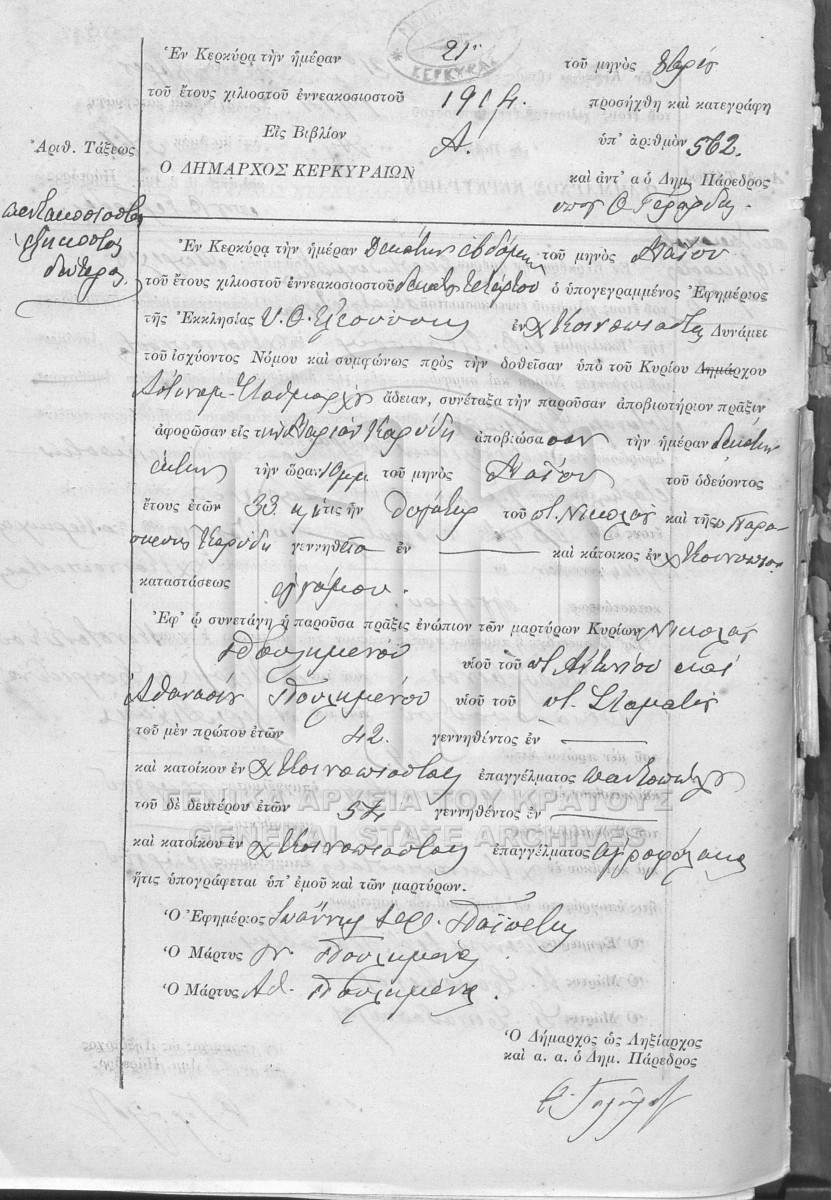 ΚΕΡΚΥΡΑ
Ἐν Κερκύρᾳ τὴν ἡμέραν 21ην τοῦ μηνὸς
τοῦ ἔτους χιλιοστοῦ ἐννεακοσιοστοῦ 1914. προσήχθη καὶ κατεγράφη
Εἰς Βιβλίον Α. ὑπ' ἀριθμὸν 562.
Ἀριθ. Τάξεως
Ο ΔΗΜΑΡΧΟΣ ΚΕΡΚΥΡΑΙΩΝ καὶ ἀντ' α ὁ Δημ. Πάρεδρος
πεντακοσιοστὸς
ἑξηκοστὸς
δεύτερος
Ἐν Κερκύρᾳ τὴν ἡμέραν Δεκάτην ἑβδόμην τοῦ μηνὸς Μαΐου
τοῦ ἔτους χιλιοστοῦ ἐννεακοσιοστοῦ δεκάτου τετάρτου ὁ ὑπογεγραμμένος Ἐφημέριος
τῆς Ἐκκλησίας Υ. Θ. Ἐλεούσης ἐν χ Κοινοπιάστες Δυνάμει
τοῦ ἰσχύοντος Νόμου καὶ συμφώνως πρὸς τὴν δοθεῖσαν ὑπὸ τοῦ Κυρίου Δημάρχου
Ἀστυνομ. Σταθμάρχου ἄδειαν, συνέταξα τὴν παροῦσαν ἀποβιωτήριον πρᾶξιν
ἀφορῶσαν εἰς τὴν Μαρίαν Καρύδη ἀποβιώσασαν τὴν ἡμέραν δεκάτην
ἕκτην τὴν ὥραν 10 μμ. τοῦ μηνὸς Μαΐου τοῦ ὁδεύοντος
ἔτους ἐτῶν 33. ἥτις ἦν θυγάτηρ τοῦ π. Νικολάου καὶ τῆς Παρα-
σκευῆς Καρύδη γεννηθεῖσα ἐν — καὶ κάτοικος ἐν χ Κοινοπιάστ
καταστάσεως ἀγάμου.
Ἐφ' ᾧ συνετάγη ἡ παροῦσα πρᾶξις ἐνώπιον τῶν μαρτύρων Κυρίων Νικολάου
Πουλημένου υἱοῦ τοῦ π. Ἀντωνίου καὶ
Ἀθανασίου Πουλημένου υἱοῦ τοῦ π. Σταμάτη
τοῦ μὲν πρώτου ἐτῶν 42. γεννηθέντος ἐν —
καὶ κατοίκου ἐν χ Κοινοπιάστας ἐπαγγέλματος παντοπώλου
ΓΕΝΙΚΑ ΑΡΧΕΙΑ ΤΟΥ ΚΡΑΤΟΥΣ
τοῦ δὲ δευτέρου ἐτῶν 54 γεννηθέντος ἐν —
GENERAL STATE ARCHIVES
καὶ κατοίκου ἐν χ Κοινοπιάστας ἐπαγγέλματος ἀγροφύλακα
ἥτις ὑπογράφεται ὑπ' ἐμοῦ καὶ τῶν μαρτύρων.
Ὁ Ἐφημέριος Ἰωάννης Ἱερ.
Ὁ Μάρτυς Ν. Πουλημένος
Ὁ Μάρτυς Αθ. Πουλημένος.
Ὁ Δήμαρχος ὡς Ληξίαρχος
καὶ α. α. ὁ Δημ. Πάρεδρος